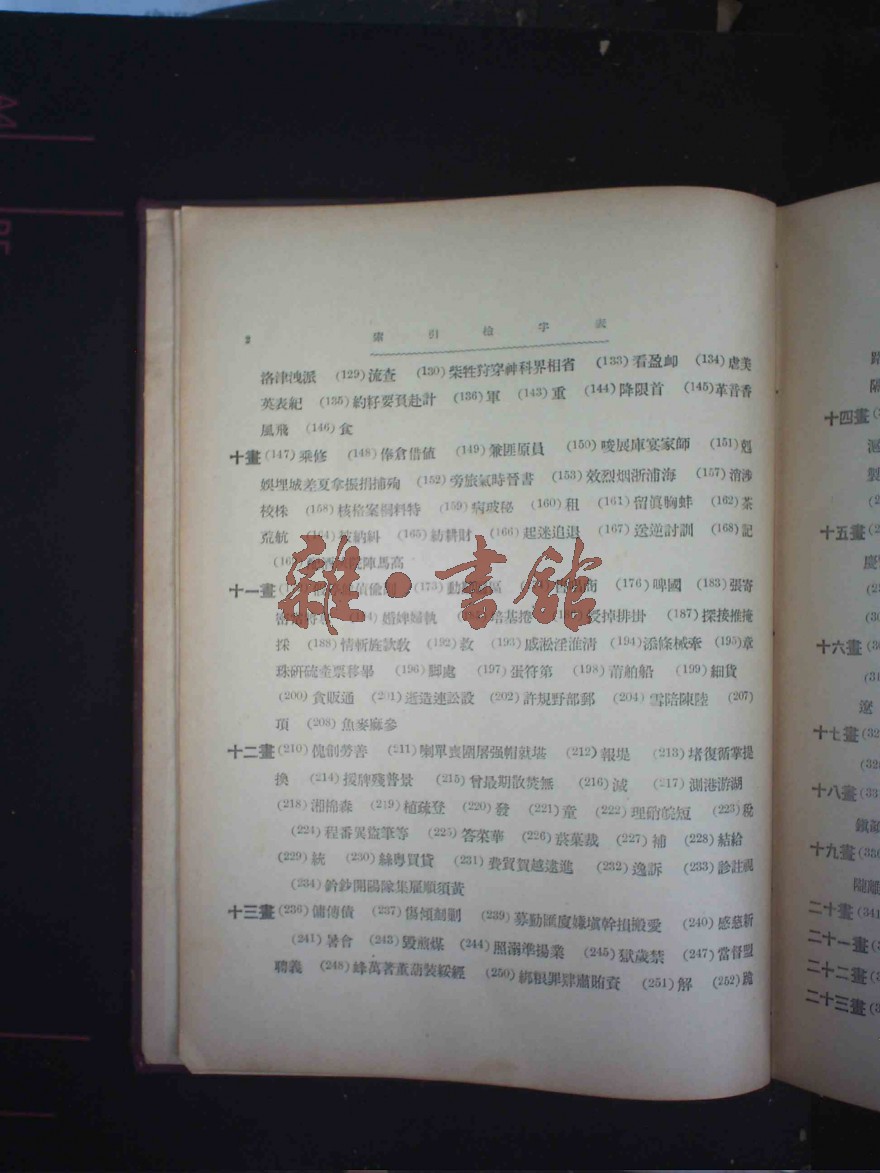 2
索引檢字表
洛津洩派 (129) 流查 (130) 柴牲狩穿神科界相省 (133) 看盈卸 (134) 虐美
英表紀 (135) 約籽要頁赴計 (136) 軍 (143) 重 (144) 降限首 (145) 革音香
風飛 (146) 食
十畫 (147) 乘修 (148) 俸倉借値 (149) 兼匪原員 (150) 唆展庫宴家師 (151) 剋
娛埋城差夏拿振捐捕殉 (152) 旁旅氣時晉書 (153) 效烈烟浙浦海 (157) 消涉
校株 (158) 核格案桐料特 (159) 病玻秘 (160) 租 (161) 留眞胸蚌 (162) 茶
荒航 (164) 納糾 (165) 紡耕財 (166) 起迷追退 (167) 送逆討訓 (168) 記
院陣馬高
十一畫 偵偸 (175) 動 區 商 (176) 啤國 (183) 張寄
婚婢婦執 培基捲 授掉排掛 (187) 探接推掩
採 (188) 情斬旌欵敎 (192) 救 (193) 戚淞淫淮淸 (194) 添條械來 (195) 章
珠研硫產票移畢 (196) 脚處 (197) 蛋符第 (198) 莆舶船 (199) 細貨
(200) 貪販通 (201) 逝造速訟設 (202) 許規野部郵 (204) 雪陪陳陸 (207)
項 (208) 魚麥麻參
十二畫 (210) 傀創勞善 (211) 喇單喪圍屠强帽就堪 (212) 報堤 (213) 堵復循掌提
換 (214) 援牌殘普景 (215) 曾最期散焚無 (216) 減 (217) 測港游湖
(218) 湘棉森 (219) 植疏登 (220) 發 (221) 童 (222) 理硝皖短 (223) 稅
(224) 程番異盜筆等 (225) 答菜華 (226) 菸菓裁 (227) 補 (228) 結給
(229) 統 (230) 絲粤買貸 (231) 費貿賀越逮進 (232) 逸訴 (233) 診註視
(234) 鈐鈔開陽隊集雇順須黃
十三畫 (236) 傭傳債 (237) 傷傾剿 (239) 募動匯廈嫌塡幹損搬愛 (240) 感慈新
(241) 暑會 (243) 毀煎煤 (244) 照溺準揚業 (245) 獄歲禁 (247) 當督盟
聘義 (248) 蜂萬著董葫裝綏經 (250) 綁粮罪肆肅賄資 (251) 解 (252) 跪
十四畫
十五畫
慶
十六畫
遼
十七畫
十八畫
十九畫
二十畫
二十一畫
二十二畫
二十三畫
雜·書館